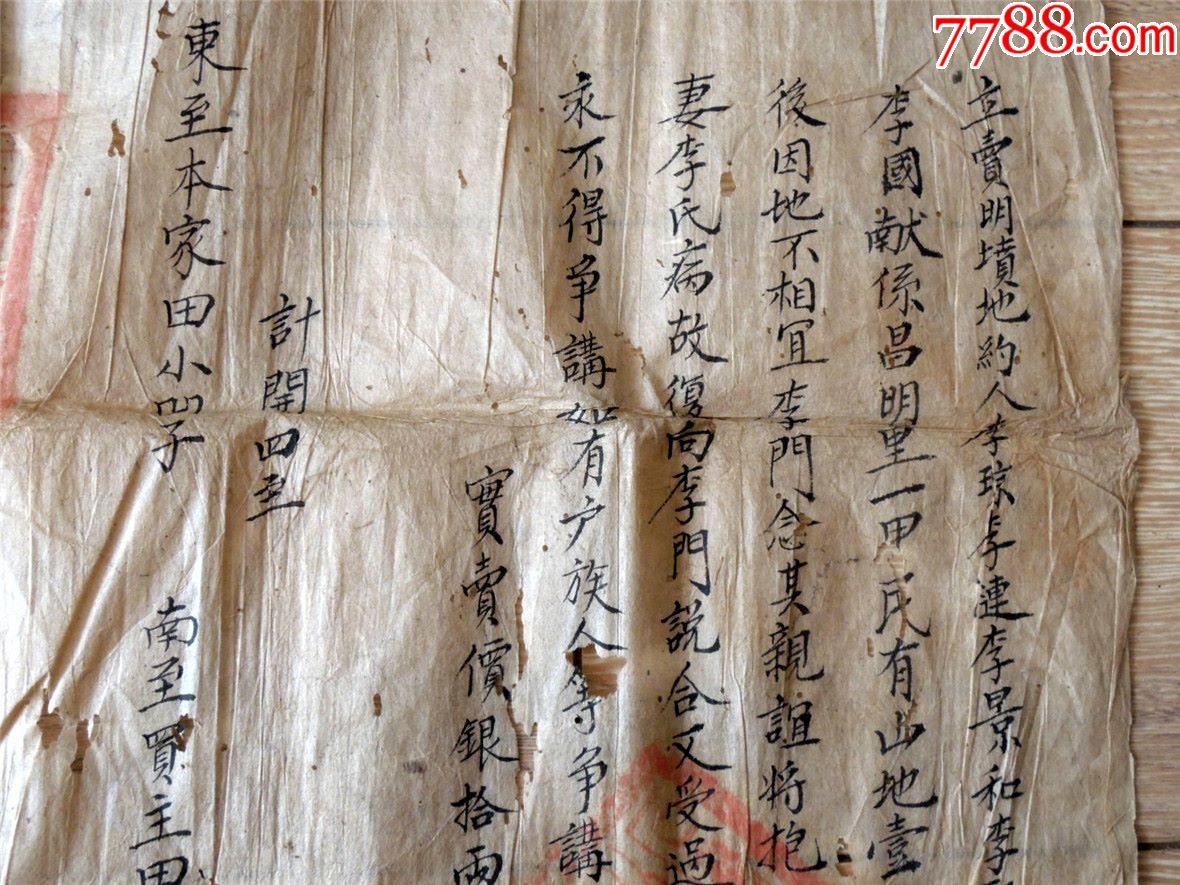 7788.com
立賣明墳地約人李琼李漣李景和李
李國献係昌明里一甲民有山地壹
後因地不相宜李門念其親誼将抱
妻李氏病故復向李門説合又受過
永不得争講如有户族人等争講
實賣價銀拾兩
計開四至
東至本家田小凹子
南至買主田